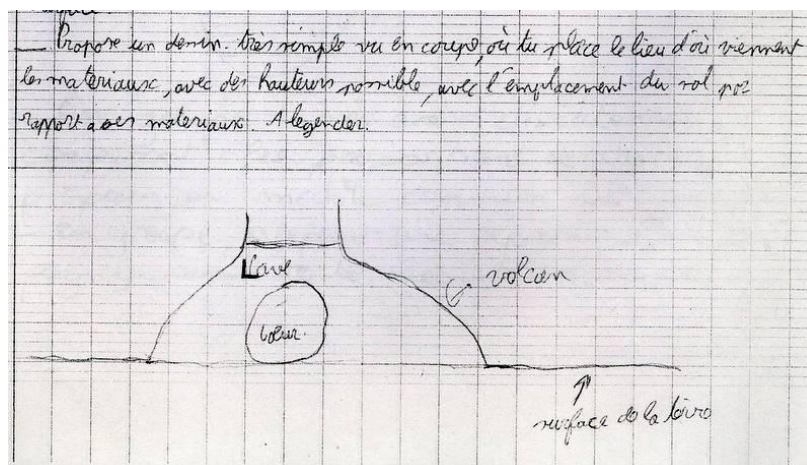 Propose un dessin. très simple vu en coupe, où tu place le lieu d'où viennent
les materiaux, avec des hauteurs possible, avec l'emplacement du sol par
rapport a ses materiaux. A legender.
Lave
volcan
coeur.
surface de la terre